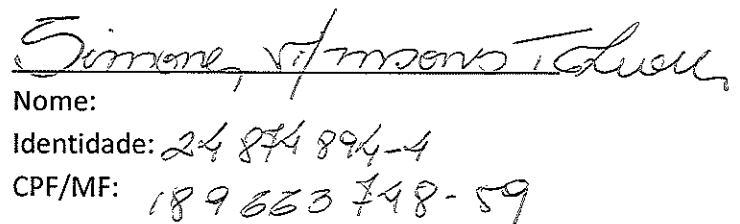 Simone
Nome:
Identidade: 24 874 894-4
CPF/MF: 189 663 748-59